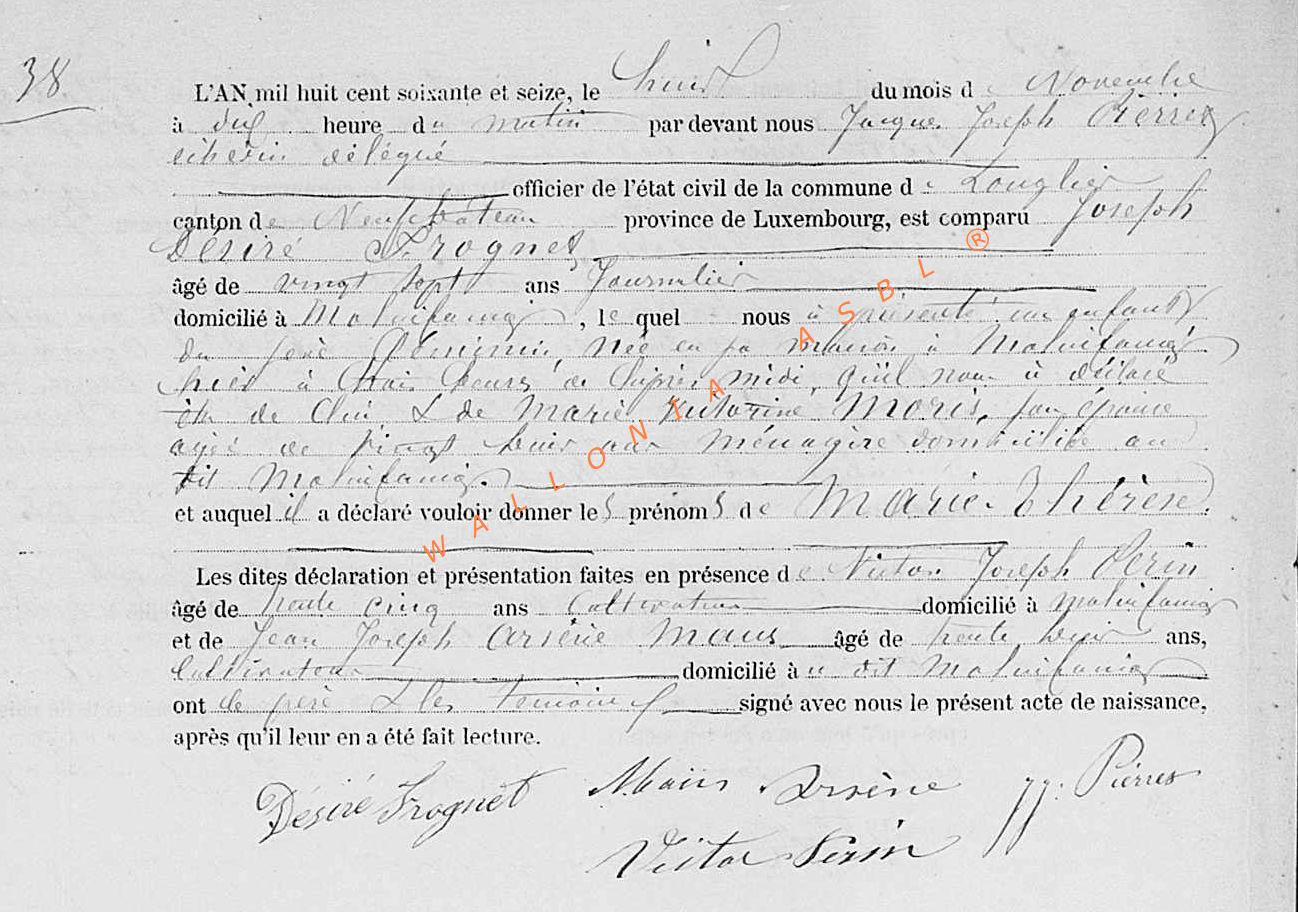 38
L'AN mil huit cent soixante et seize, le huit du mois de Novembre
à dix heure du matin par devant nous Jacque Joseph Pierret
echevin délégué
officier de l'état civil de la commune de Longlier
canton de Neufchâteau province de Luxembourg, est comparu Joseph
Désiré Frognet
âgé de vingt sept ans Journalier
domicilié à Molinfaing, le quel nous a présenté un enfant
du sexe féminin, née en sa maison à Molinfaing
hier à trois heures de l'après midi, qu'il nous a déclaré
être de lui & de Marie Victorine Moris, son épouse
agée de vingt huit ans ménagère domiciliée au
dit Molinfaing.
et auquel il a déclaré vouloir donner les prénoms de Marie-Thérèse.
Les dites déclaration et présentation faites en présence de Victor Joseph Perin
âgé de trente cinq ans Cultivateur domicilié à Molinfaing
et de Jean Joseph Arsène Maus âgé de trente ans,
Cultivateur domicilié à u dit Molinfaing
ont le père & les temoins signé avec nous le présent acte de naissance,
après qu'il leur en a été fait lecture.
Désiré Frognet Maus Arsène JJ. Pierret
Victor Perin
WALLONIA ASBL ®